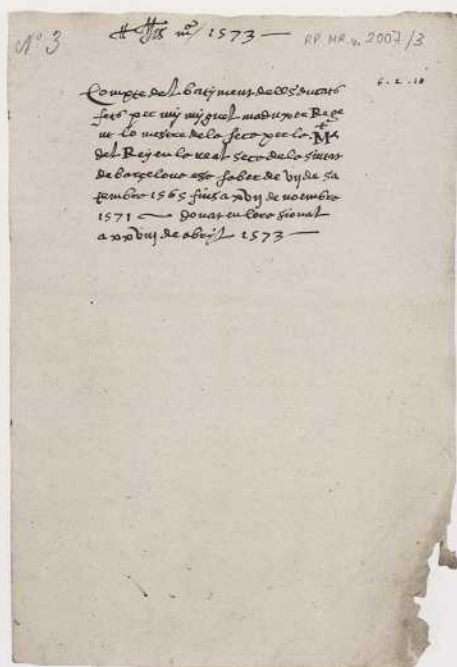 Nº 3
1573
RP. MR. v. 2007/3
6.2.18
Compte del batiment dells ducats
fets per my miquel maduxer Rege
nt lo mestre de la seca per la Mt
del Rey en la real seca de la siutat
de barçelona es a saber de vij de sa
tembra 1565 fins a xvij de noembra
1571 donat en lo racional
a xxviij de abril 1573